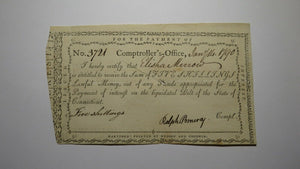 FOR THE PAYMENT OF
No. 3721 Comptroller's-Office, 1790
I hereby certify that Elisha
is entitled to receive the Sum of FIVE SHILLINGS
Lawful Money, out of any Funds appropriated for the
Payment of interest on the liquidated Debt of the State of
Connecticut.
Five shillings
Ralph Pomeroy Compt.
HARTFORD: PRINTED BY HUDSON AND GOODWIN.